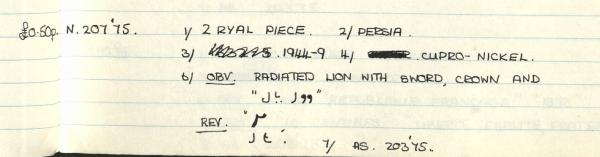 £0.50p. N. 207'75. 1/ 2 RYAL PIECE. 2/ PERSIA.
3/ 1944-9 4/ CUPRO-NICKEL.
6/ OBV. RADIATED LION WITH SWORD, CROWN AND
REV.
7/ AS. 203'75.